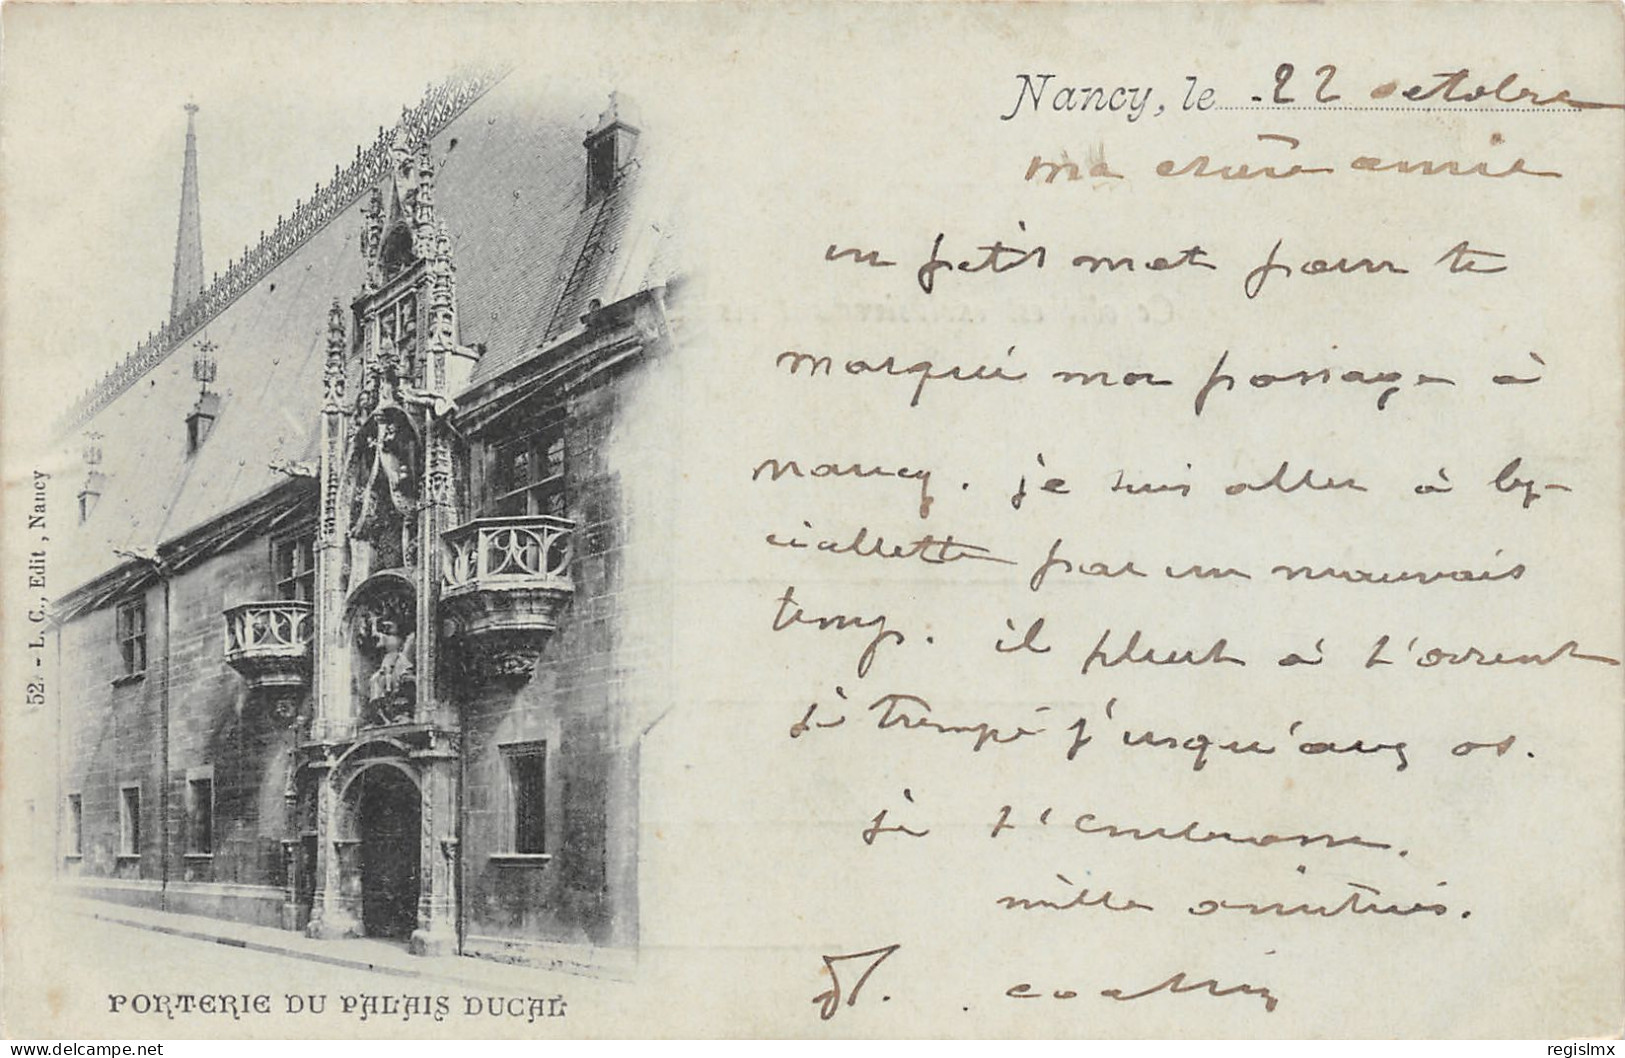 Nancy, le 22 octobre
ma chère amie
un petit mot pour te
marqué mon passage à
nancy. je suis aller à by-
ciallette par un mauvais
temp. il pleut à t'orrent
je trempé j'usqu'aux os.
je t'embrasse.
mille amitiés.
52. - L. C., Edit, Nancy
PORTERIE DU PALAIS DUCAL
delcampe.net
regislmx